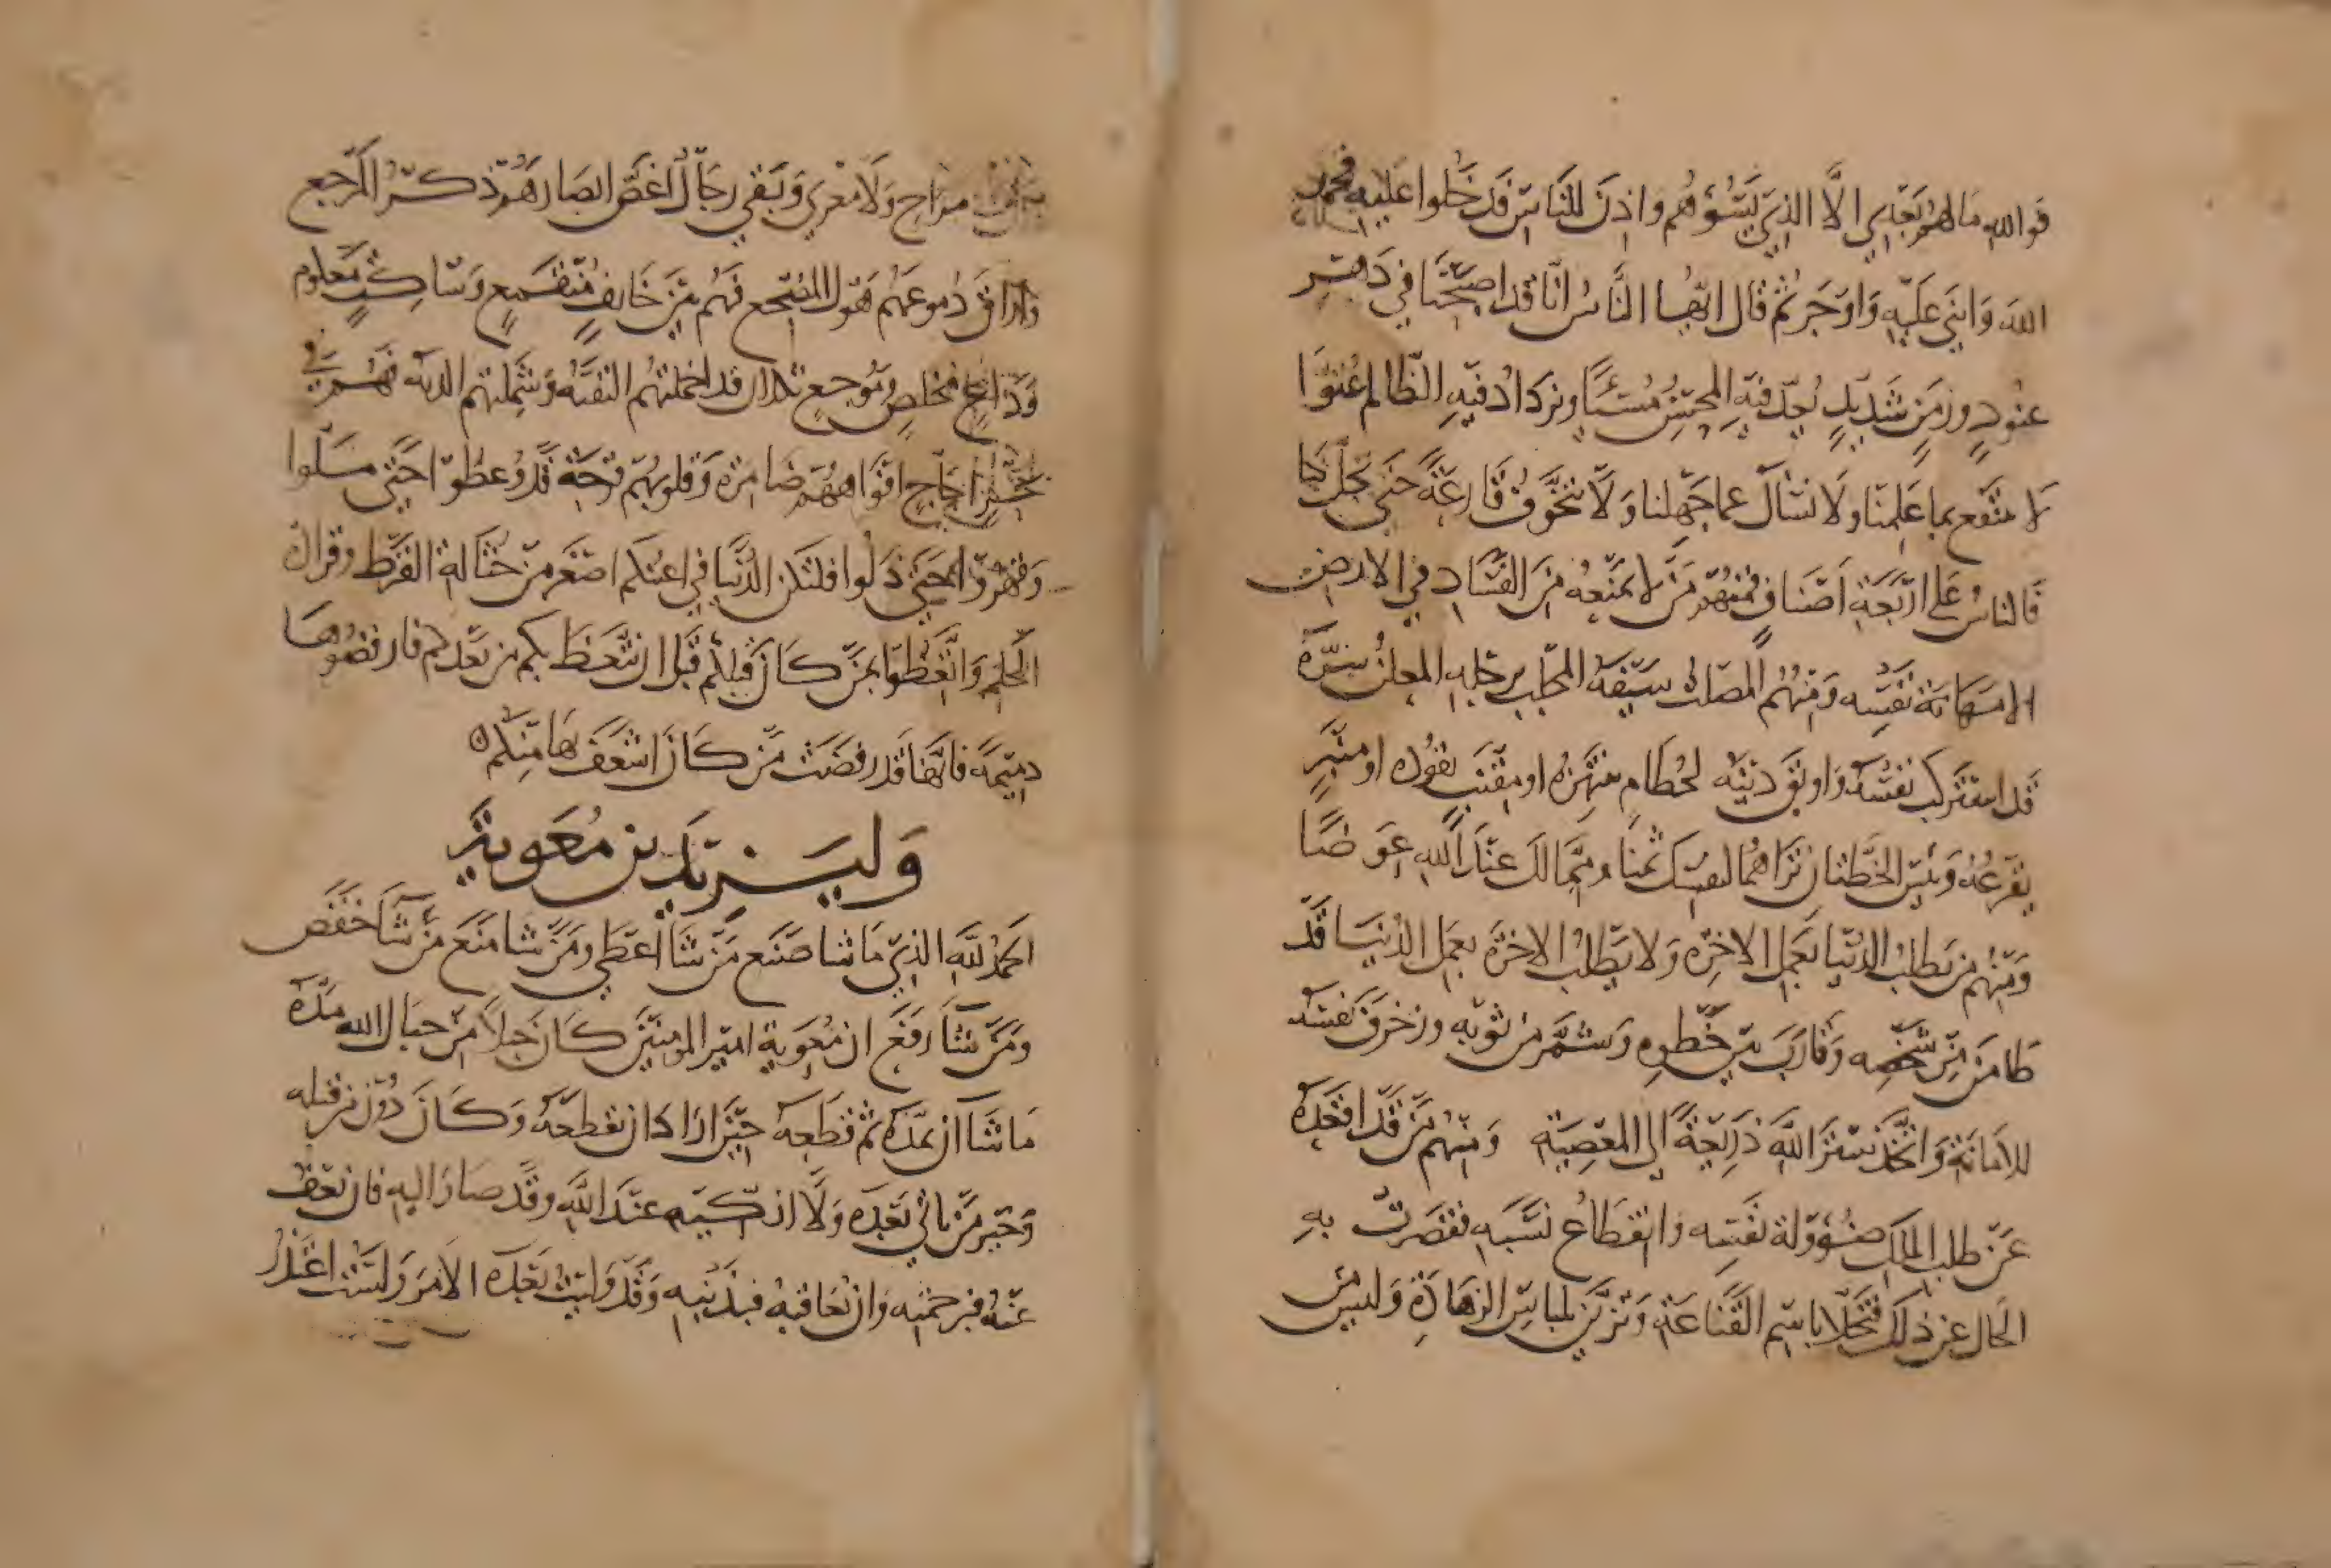 فوالله ما لهم بعدي الا الذي يسوؤهم واذن للناس فدخلوا عليه فحمد
الله واثنى عليه واوجز ثم قال ايها الناس انا قد اصبحنا في دهر
عنود وزمن شديد يعد فيه المحسن مسيئا ويزداد فيه الظالم عتوا
لا ننتفع بما علمنا ولا نسأل عما جهلنا ولا نتخوف قارعة حتى تحل بنا
فالناس على اربعة اصناف فمنهم من لا يمنعه من الفساد في الارض
الا مهانة نفسه ومنهم المصلت سيفه المجلب برجله المعلن بسره
قد اشرط نفسه واوبق دينه لحطام ينتهزه او مقنب يقوده او منبر
يفرعه وبئس الخطتان تراهما لنفسك ثمنا ومما لك عند الله عوضا
ومنهم من يطلب الدنيا بعمل الاخرة ولا يطلب الاخرة بعمل الدنيا قد
طامن من شخصه وقارب من خطوه وشمر من ثوبه وزخرف نفسه
للامانة واتخذ ستر الله ذريعة الى المعصية ومنهم من قد اقعده
عن طلب الملك ضؤولة نفسه وانقطاع نسبه فقصرت به
الحال عن ذلك فتحلا باسم القناعة وتزين بلباس الزهادة وليس من
مراح ولا مغدي وبقي رجال اغض ابصارهم ذكر المرجع
واراق دموعهم هول المضجع فهم بين خايف منقمع وساكت معلوم
وداع مخلص وموجع ثكلان قد اخملتهم التقية وشملتهم الذلة فهم في
بحر اجاج افواههم ضامزة وقلوبهم قرحة قد وعظوا حتى ملوا
وقهروا حتى ذلوا فلتكن الدنيا في اعينكم اصغر من حثالة القرظ وقراد
الحلم واتعظوا بمن كان قبلكم قبل ان يتعظ بكم من بعدكم فارفضوها
ذميمة فانها قد رفضت من كان اشعف بها منكم
وليزيد بن معوية
الحمد لله الذي ما شا صنع من شا اعطى ومن شا منع من شا خفض
ومن شا رفع ان معوية امير المومنين كان حبلا من حبال الله مده
ما شا ان يمده ثم قطعه حين اراد ان يقطعه وكان دون من قبله
وخير من ياتي بعده ولا ازكيه عند الله وقد صار اليه فان يعف
عنه فبرحمته وان يعاقبه فبذنبه وقد وليت بعده الامر ولست اعتذر